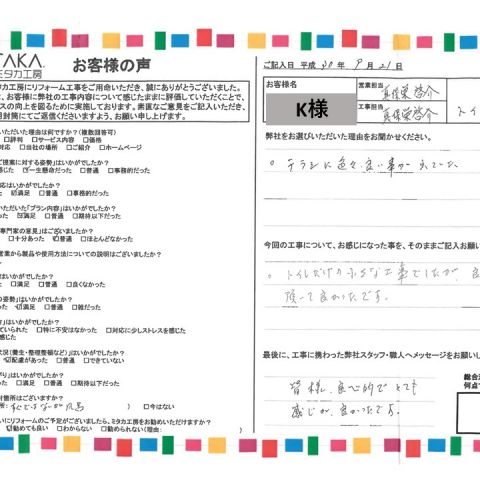 TAKA.
ミタカ工房
お客様の声
タカ工房にリフォーム工事をご用命いただき、誠にありがとうございました。
、お客様に弊社の工事内容について感じたままに評価していただくことで、
スの向上を図るために実施しております。率直なご意見をご記入いただき、
封筒にてご返信くださいますよう、お願い申し上げます。
いただいた理由は何ですか?(複数回答可)
□評判 □サービス内容 □価格
対応 □当社の場所 □ご紹介 □ホームページ
ご提案に対する姿勢はいかがでしたか?
感じた □一生懸命だった □普通 □事務的だった
応はいかがでしたか?
満足 □普通 □事務的だった
いただいた「プラン内容」はいかがでしたか?
った 満足 □普通 □期待以下だった
専門家の意見」はございましたか?
□十分あった □ほとんどなかった
営業から製品や使用方法についての説明はございましたか?
はいかがでしたか?
満足 □普通 □良くなかった
の姿勢」はいかがでしたか?
った 満足 □普通 □雑だった
」はいかがでしたか?
ていられた □特に不安はなかった □対応に少しストレスを感じた
を感じた
状況(養生・整理整頓など)」はいかがでしたか?
配慮があった □できていない
がり」はいかがでしたか?
満足 □普通 □期待以下だった
討箇所はございますか?
所: ) □今はない
いにリフォームのご予定がございましたら、ミタカ工房をお勧めいただけますか?
勧めても良い □わからない □勧められない(理由: )
ご記入日 平成 30 年 9 月 21 日
お客様名
K様
営業担当
真保栄啓介
工事担当
真保栄啓介
トイ
弊社をお選びいただいた理由をお聞かせください。
○ チラシに色々、良い事が
今回の工事について、お感じになった事を、そのままご記入お願い
○ トイレだけの小さな工事でしたが、良
頂いて良かったです。
最後に、工事に携わった弊社スタッフ・職人へメッセージをお願いし
皆様、良心的でとても
感じが、良かったです。
総合
何点で